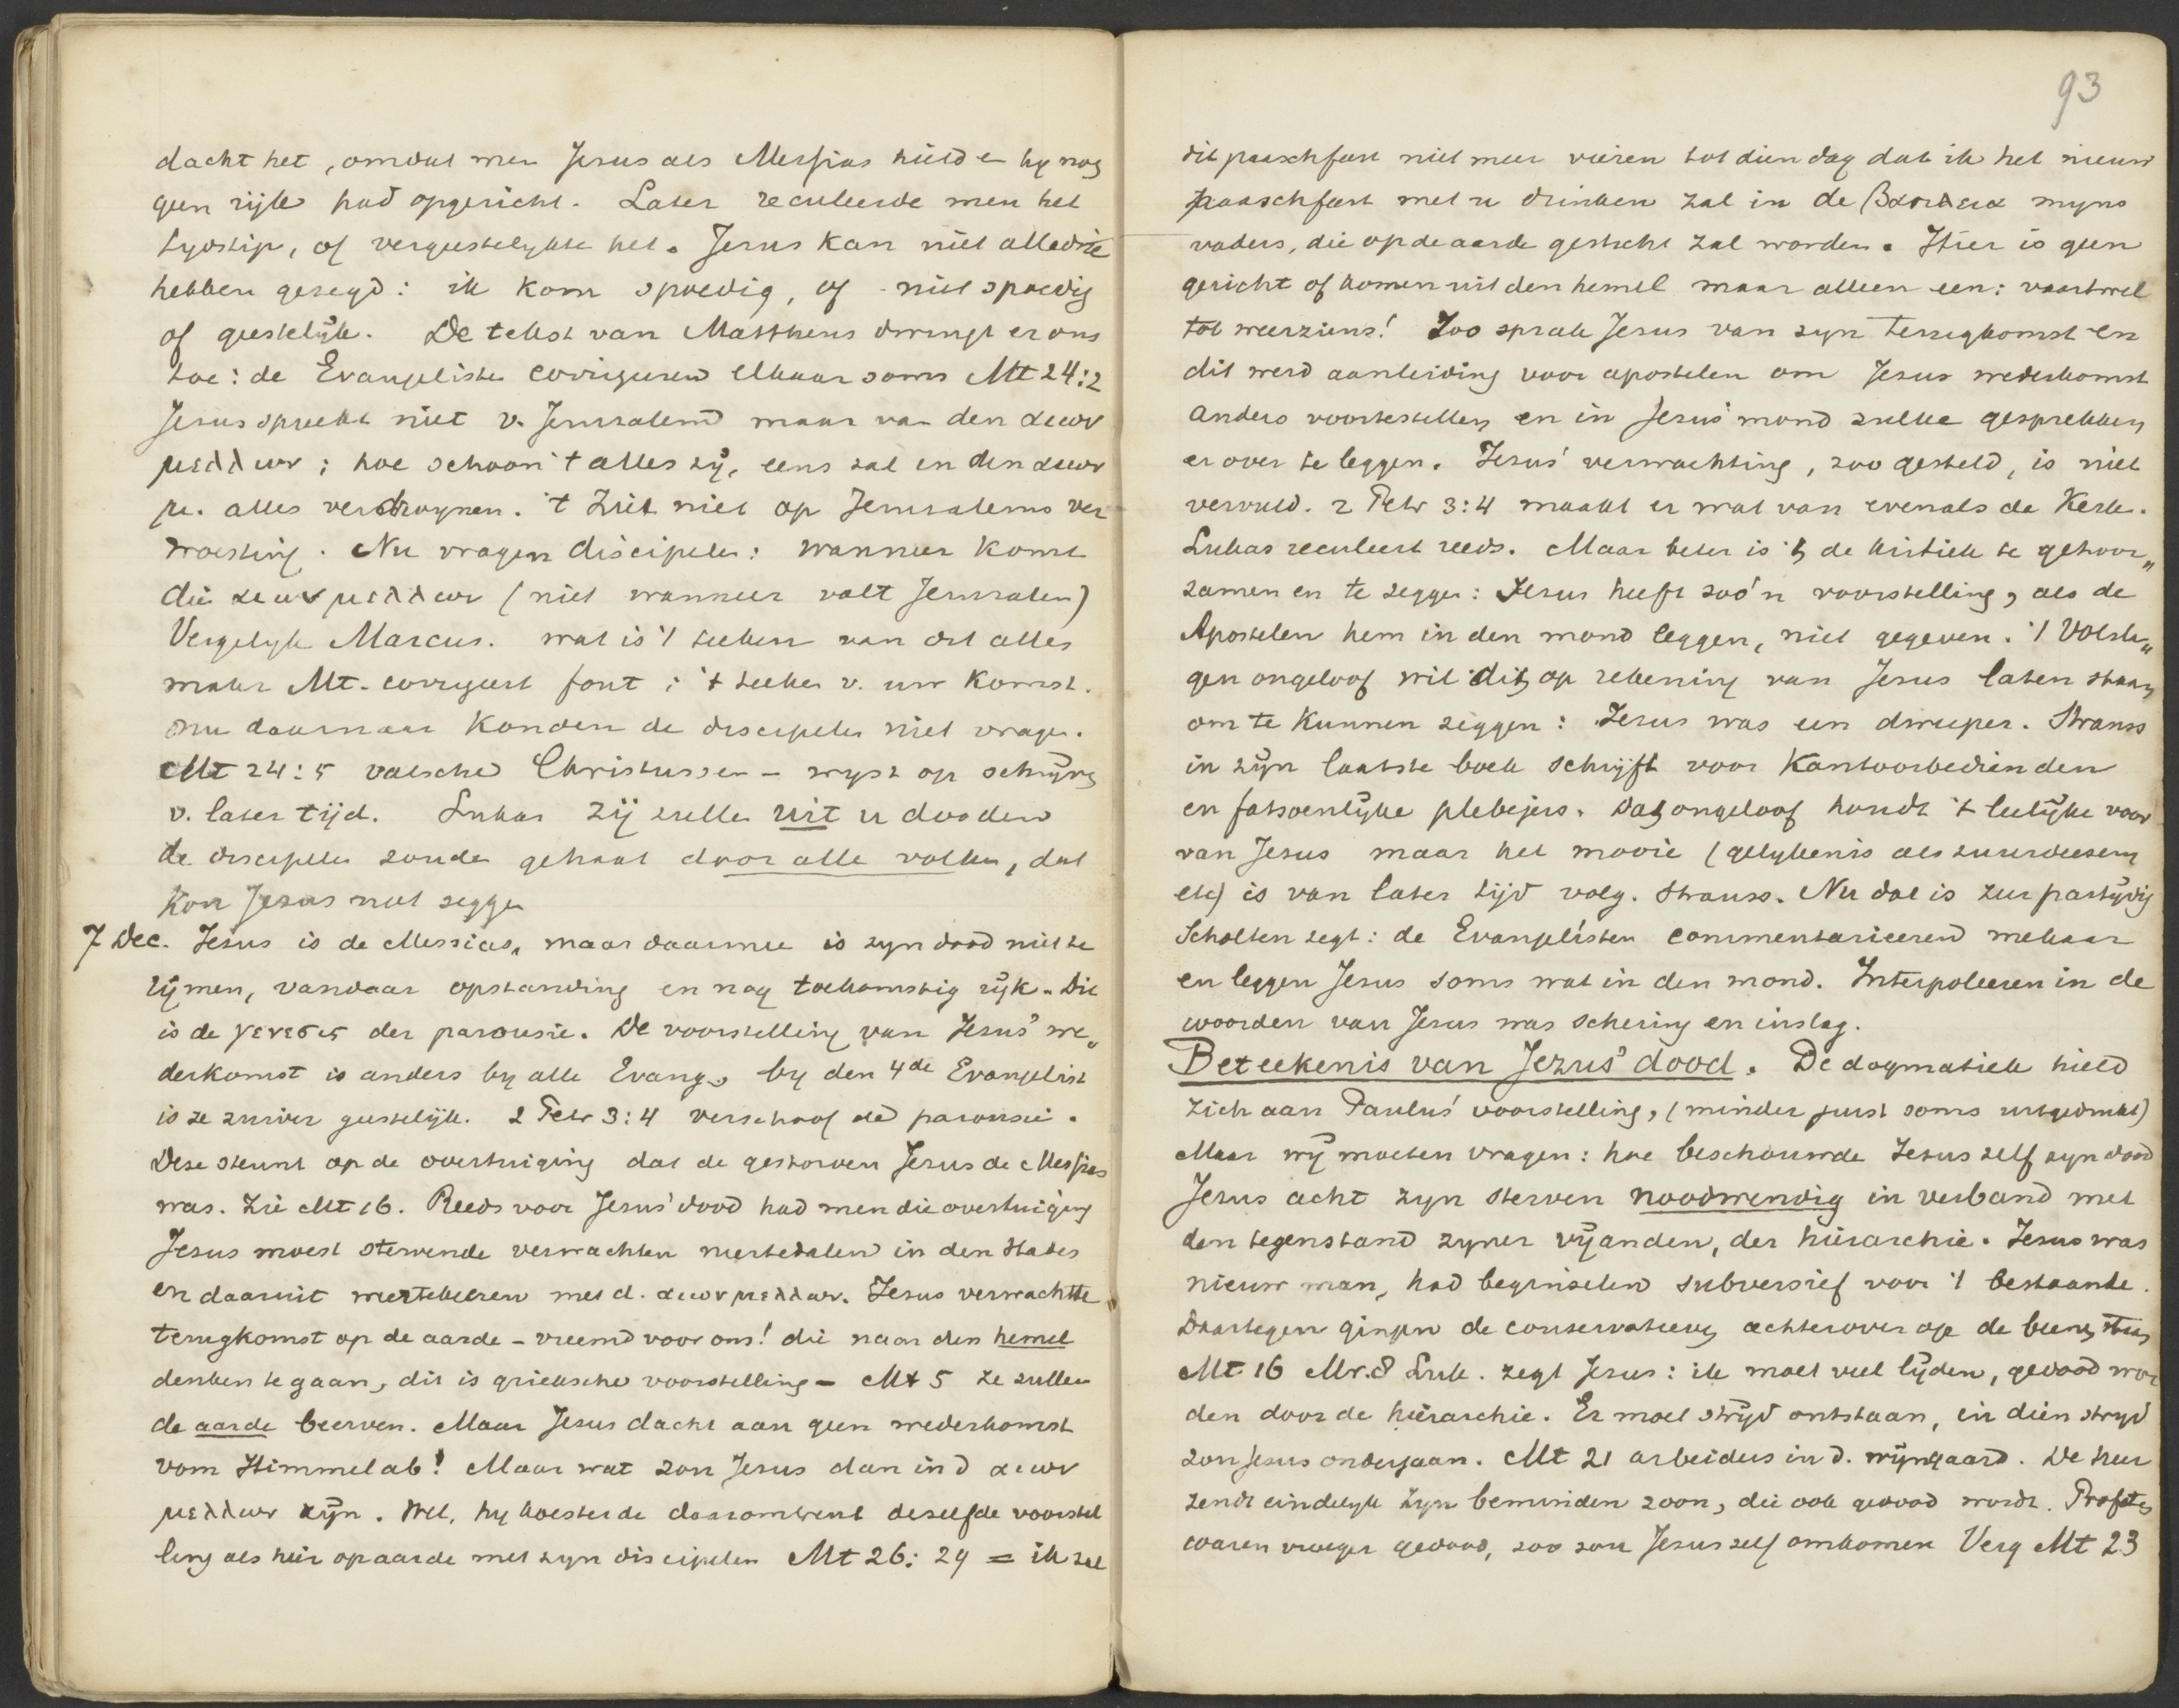 dacht het, omdat men Jesus als Messias hield en hy nog
geen rijk had opgericht. Later reculeerde men het
tydstip, of vergeestelykte het. Jesus kan niet alledrie
hebben gezegd: ik kom spoedig, of niet spoedig
of geestelijk. De tekst van Mattheus dwingt er ons
toe: de Evangelisten corrigeeren elkaar soms Mt 24:2
Jesus spreekt niet v. Jerusalem maar van den αιων
μελλων; hoe schoon 't alles zij, eens zal in den αιων
μ. alles verdwynen. 't Ziet niet op Jerusalems ver
woesting. Nu vragen discipelen: wanneer komt
die αιων μελλων (niet wanneer valt Jerusalem)
Vergelyk Marcus. wat is 't teeken van dit alles
maar Mt. corrigeert fout; 't teeken v. uw komst.
Nu daarnaar konden de discipelen niet vragen.
Mt 24:5 valsche Christussen - wyst op schijning
v. later tijd. Lukas zij zullen uit u dooden
de discipelen zouden gehaat door alle volken, dat
kon Jesus niet zeggen
7 Dec. Jesus is de Messias, maar daarmee is zyn dood niet te
rijmen, vandaar opstanding en nog toekomstig rijk. Dit
is de γενεσις der parousie. De voorstelling van Jesus' we„
derkomst is anders by alle Evang. by den 4de Evangelist
is ze zuiver geestelijk. 2 Petr 3:4 verschoof de parousie.
Deze steunt op de overtuiging dat de gestorven Jesus de Messias
was. Zie Mt 16. Reeds voor Jesus' dood had men die overtuiging
Jesus moest stervende verwachten neertedalen in den Hades
en daaruit weertekeeren met d. αιων μελλων. Jesus verwachtte
terugkomst op de aarde - vreemd voor ons! die naar den hemel
denken te gaan, dit is grieksche voorstelling - Mt 5 ze zullen
de aarde beerven. Maar Jesus dacht aan geen wederkomst
vom Himmel ab! Maar wat zou Jesus dan in d αιων
μελλων zijn. Wel, hy koesterde daaromtrent dezelfde voorstel
ling als hier op aarde met zyn discipelen Mt 26:29 = ik zal
93
dit paaschfeest niet meer vieren tot dien dag dat ik het nieuw
paaschfeest met u drinken zal in de βασιλεια myns
vaders, die op de aarde gesticht zal worden. Hier is geen
gericht of komen uit den hemel maar alleen een: vaartwel
tot weerziens! Zoo sprak Jesus van zyn terugkomst en
dit werd aanleiding voor apostelen om Jesus wederkomst
anders voortestellen en in Jesus' mond zulke gesprekken
er over te leggen. Jesus' verwachting, zoo gesteld, is niet
vervuld. 2 Petr 3:4 maakt er wat van evenals de Kerk.
Lukas reculeert reeds. Maar beter is 't de kritiek te gehoor„
zamen en te zeggen: Jesus heeft zoo'n voorstelling, als de
Apostelen hem in den mond leggen, niet gegeven. 't Volsla„
gen ongeloof wil dit op rekening van Jesus laten staan
om te kunnen zeggen: Jesus was een dweeper. Strauss
in zijn laatste boek schrijft voor Kantoorbedienden
en fatsoenlijke plebejers. Dat ongeloof houdt 't leelijke voor
van Jesus maar het mooie (gelykenis als zuurdeesem
etc) is van later tijd volg. Strauss. Nu dat is zeer partijdig
Scholten zegt: de Evangelisten commentarieeren mekaar
en leggen Jesus soms wat in den mond. Interpoleeren in de
woorden van Jesus was schering en inslag.
Beteekenis van Jezus' dood. De dogmatiek hield
zich aan Paulus' voorstelling, (minder juist soms uitgedrukt)
Maar wij moeten vragen: hoe beschouwde Jesus zelf zyn dood
Jesus acht zyn sterven noodwendig in verband met
den tegenstand zyner vijanden, der hiërarchie. Jesus was
nieuw man, had beginselen subversief voor 't bestaande.
Daartegen gingen de conservatieven achterover op de beenen staan
Mt 16 Mr. 8 Luk. zegt Jesus: ik moet veel lijden, gedood wor
den door de hiërarchie. Er moet strijd ontstaan, in dien strijd
zou Jesus ondergaan. Mt 21 arbeiders in d. wijngaard. De heer
zendt eindelyk zyn beminden zoon, die ook gedood wordt. Profeten
waren vroeger gedood, zoo zou Jesus zelf omkomen Verg Mt 23